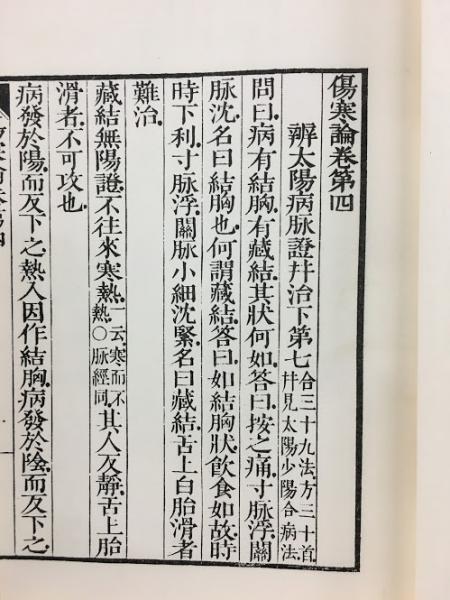 傷寒論卷第四
辨太陽病脉證并治下第七合三十九法方三十首
并見太陽少陽合病法
問曰病有結胸有藏結其狀何如答曰按之痛寸脉浮關
脉沈名曰結胸也何謂藏結答曰如結胸狀飲食如故時
時下利寸脉浮關脉小細沈緊名曰藏結舌上白胎滑者
難治
藏結無陽證不往來寒熱一云寒而不
熱○脉經同其人反靜舌上胎
滑者不可攻也
病發於陽而反下之熱入因作結胸病發於陰而反下之